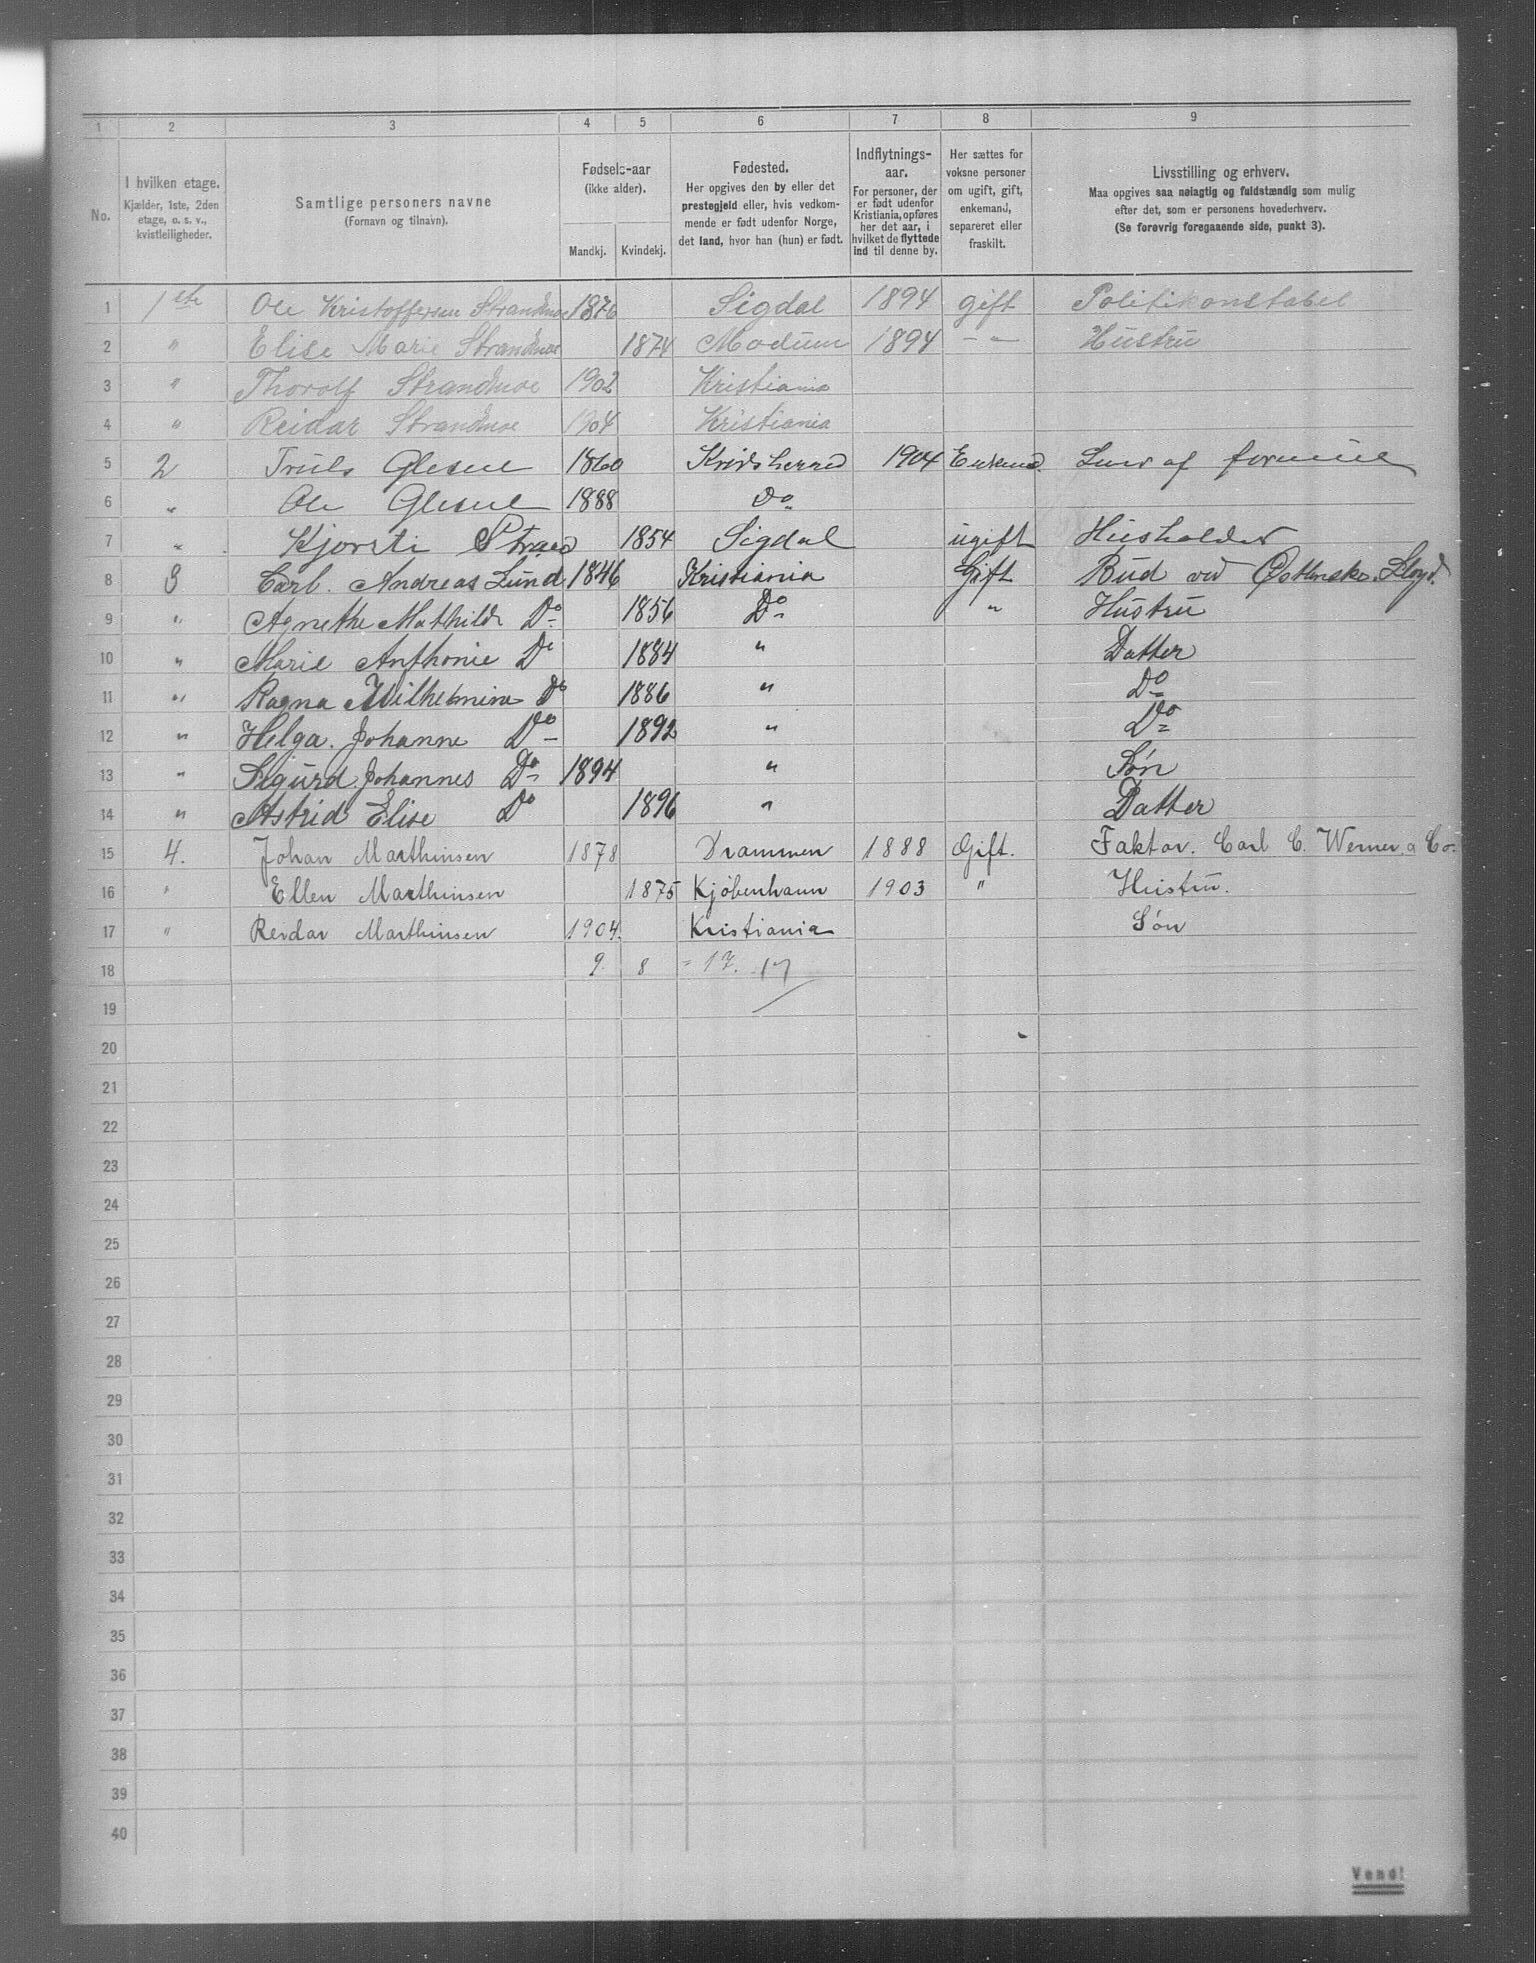 1 2 3 4 5 6 7 8 9
No. I hvilken etage. Kjælder, 1ste, 2den etage, o. s. v., kvistleiligheder. Samtlige personers navne (Fornavn og tilnavn). Fødsels-aar (ikke alder). Mandkj. Kvindekj. Fødested. Her opgives den by eller det prestegjeld eller, hvis vedkommende er født udenfor Norge, det land, hvor han (hun) er født. Indflytnings-aar. For personer, der er født udenfor Kristiania, opføres her det aar, i hvilket de flyttede ind til denne by. Her sættes for voksne personer om ugift, gift, enkemand, separeret eller fraskilt. Livsstilling og erhverv. Maa opgives saa nøiagtig og fuldstændig som mulig efter det, som er personens hovederhverv. (Se forøvrig foregaaende side, punkt 3).
1 1ste Ole Kristoffersen Strandmoe 1876 Sigdal 1894 gift Politikonstabel
2 " Elise Marie Strandmoe 1874 Modum 1894 -"- Hustru
3 " Thorolf Strandmoe 1902 Kristiania
4 " Reidar Strandmoe 1904 Kristiania
5 2 Truls Glesne 1860 1904 Enkemd. af formue
6 " Ole Glesne 1888 Do
7 " Kjersti 1854 Sigdal ugift Husholder
8 3 Carl. Andreas Lund 1846 Kristiania Gift Bud ved Lloyd.
9 " Agnethe Mathilde Do 1856 Do " Hustru
10 " Marie Anthonie Do 1884 " Datter
11 " Ragna Wilhelmine Do 1886 " Do
12 " Helga. Johanne Do 1892 " Do
13 " Sigurd Johannes Do 1894 " Søn
14 " Astrid Elise Do 1896 " Datter
15 4. Johan Marthinsen 1878 Drammen 1888 Gift. Faktor. Carl C. Werner & Co.
16 " Ellen Marthinsen 1875 Kjøbenhavn 1903 " Hustru.
17 " Reidar Marthinsen 1904. Kristiania Søn
18 9. 8 = 17. 17
19
20
21
22
23
24
25
26
27
28
29
30
31
32
33
34
35
36
37
38
39
40
Vend!